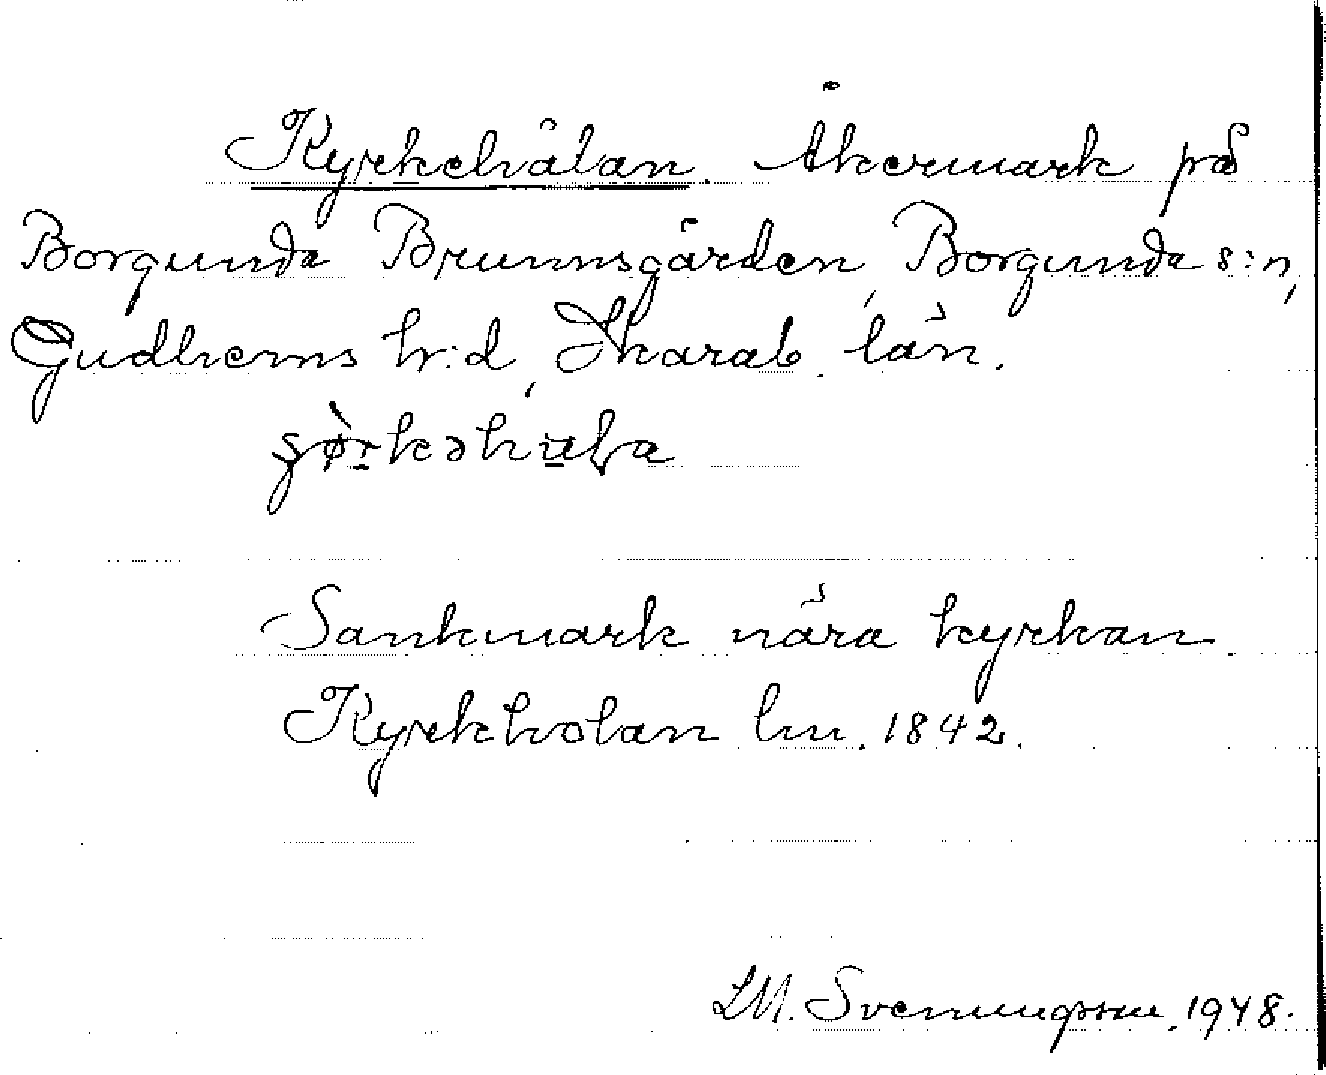 Kyrkehålan. Åkermark på
Borgunda Brunnsgården, Borgunda s:n,
Gudhems h:d, Skarab. län.
Sankmark nära kyrkan.
Kyrkholan lm. 1842.
L.M. Svenungsson. 1948.